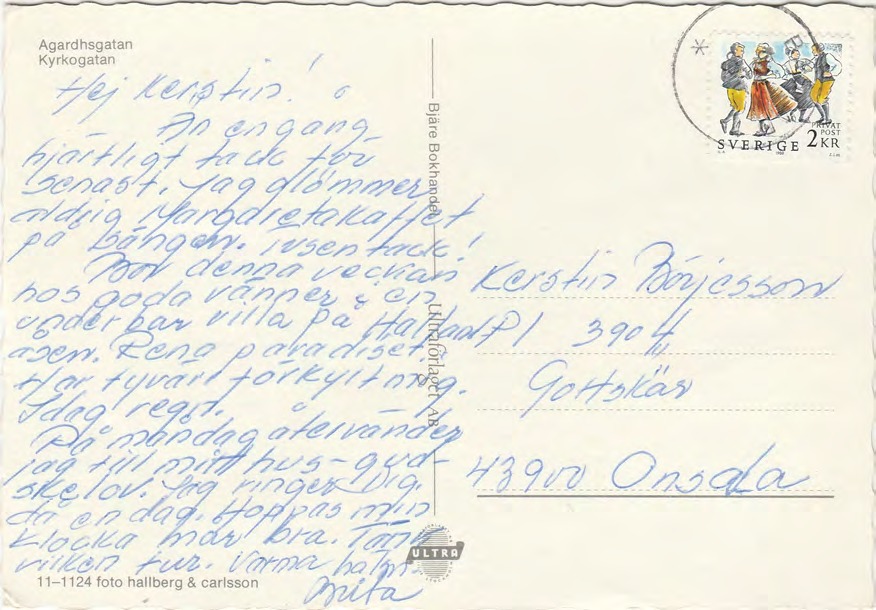 Agardhsgatan
Kyrkogatan
Hej Kerstin!
Än en gång
hjärtligt tack för
senast. Jag glömmer
aldrig Margaretakaffet
på sängen. Tusen tack!
Bor denna veckan
hos goda vänner i en
underbar villa på Halland
åsen. Rena paradiset.
Har tyvärr förkylning.
Idag regn.
På måndag återvänder
jag till mitt hus – gud-
skelov. Jag ringer Dig
då en dag. Hoppas min
klocka mår bra. Tänk
vilken tur. Varma häls.
Brita
11–1124 foto hallberg & carlsson
Bjäre Bokhandel
Ultraförlaget AB
ULTRA
SVERIGE 2 KR
PRIVAT
POST
Kerstin Börjesson
Pl 3904
Gottskär
43900 Onsala